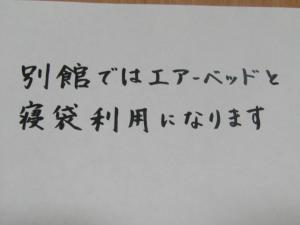 別館ではエアーベッドと
寝袋利用になります